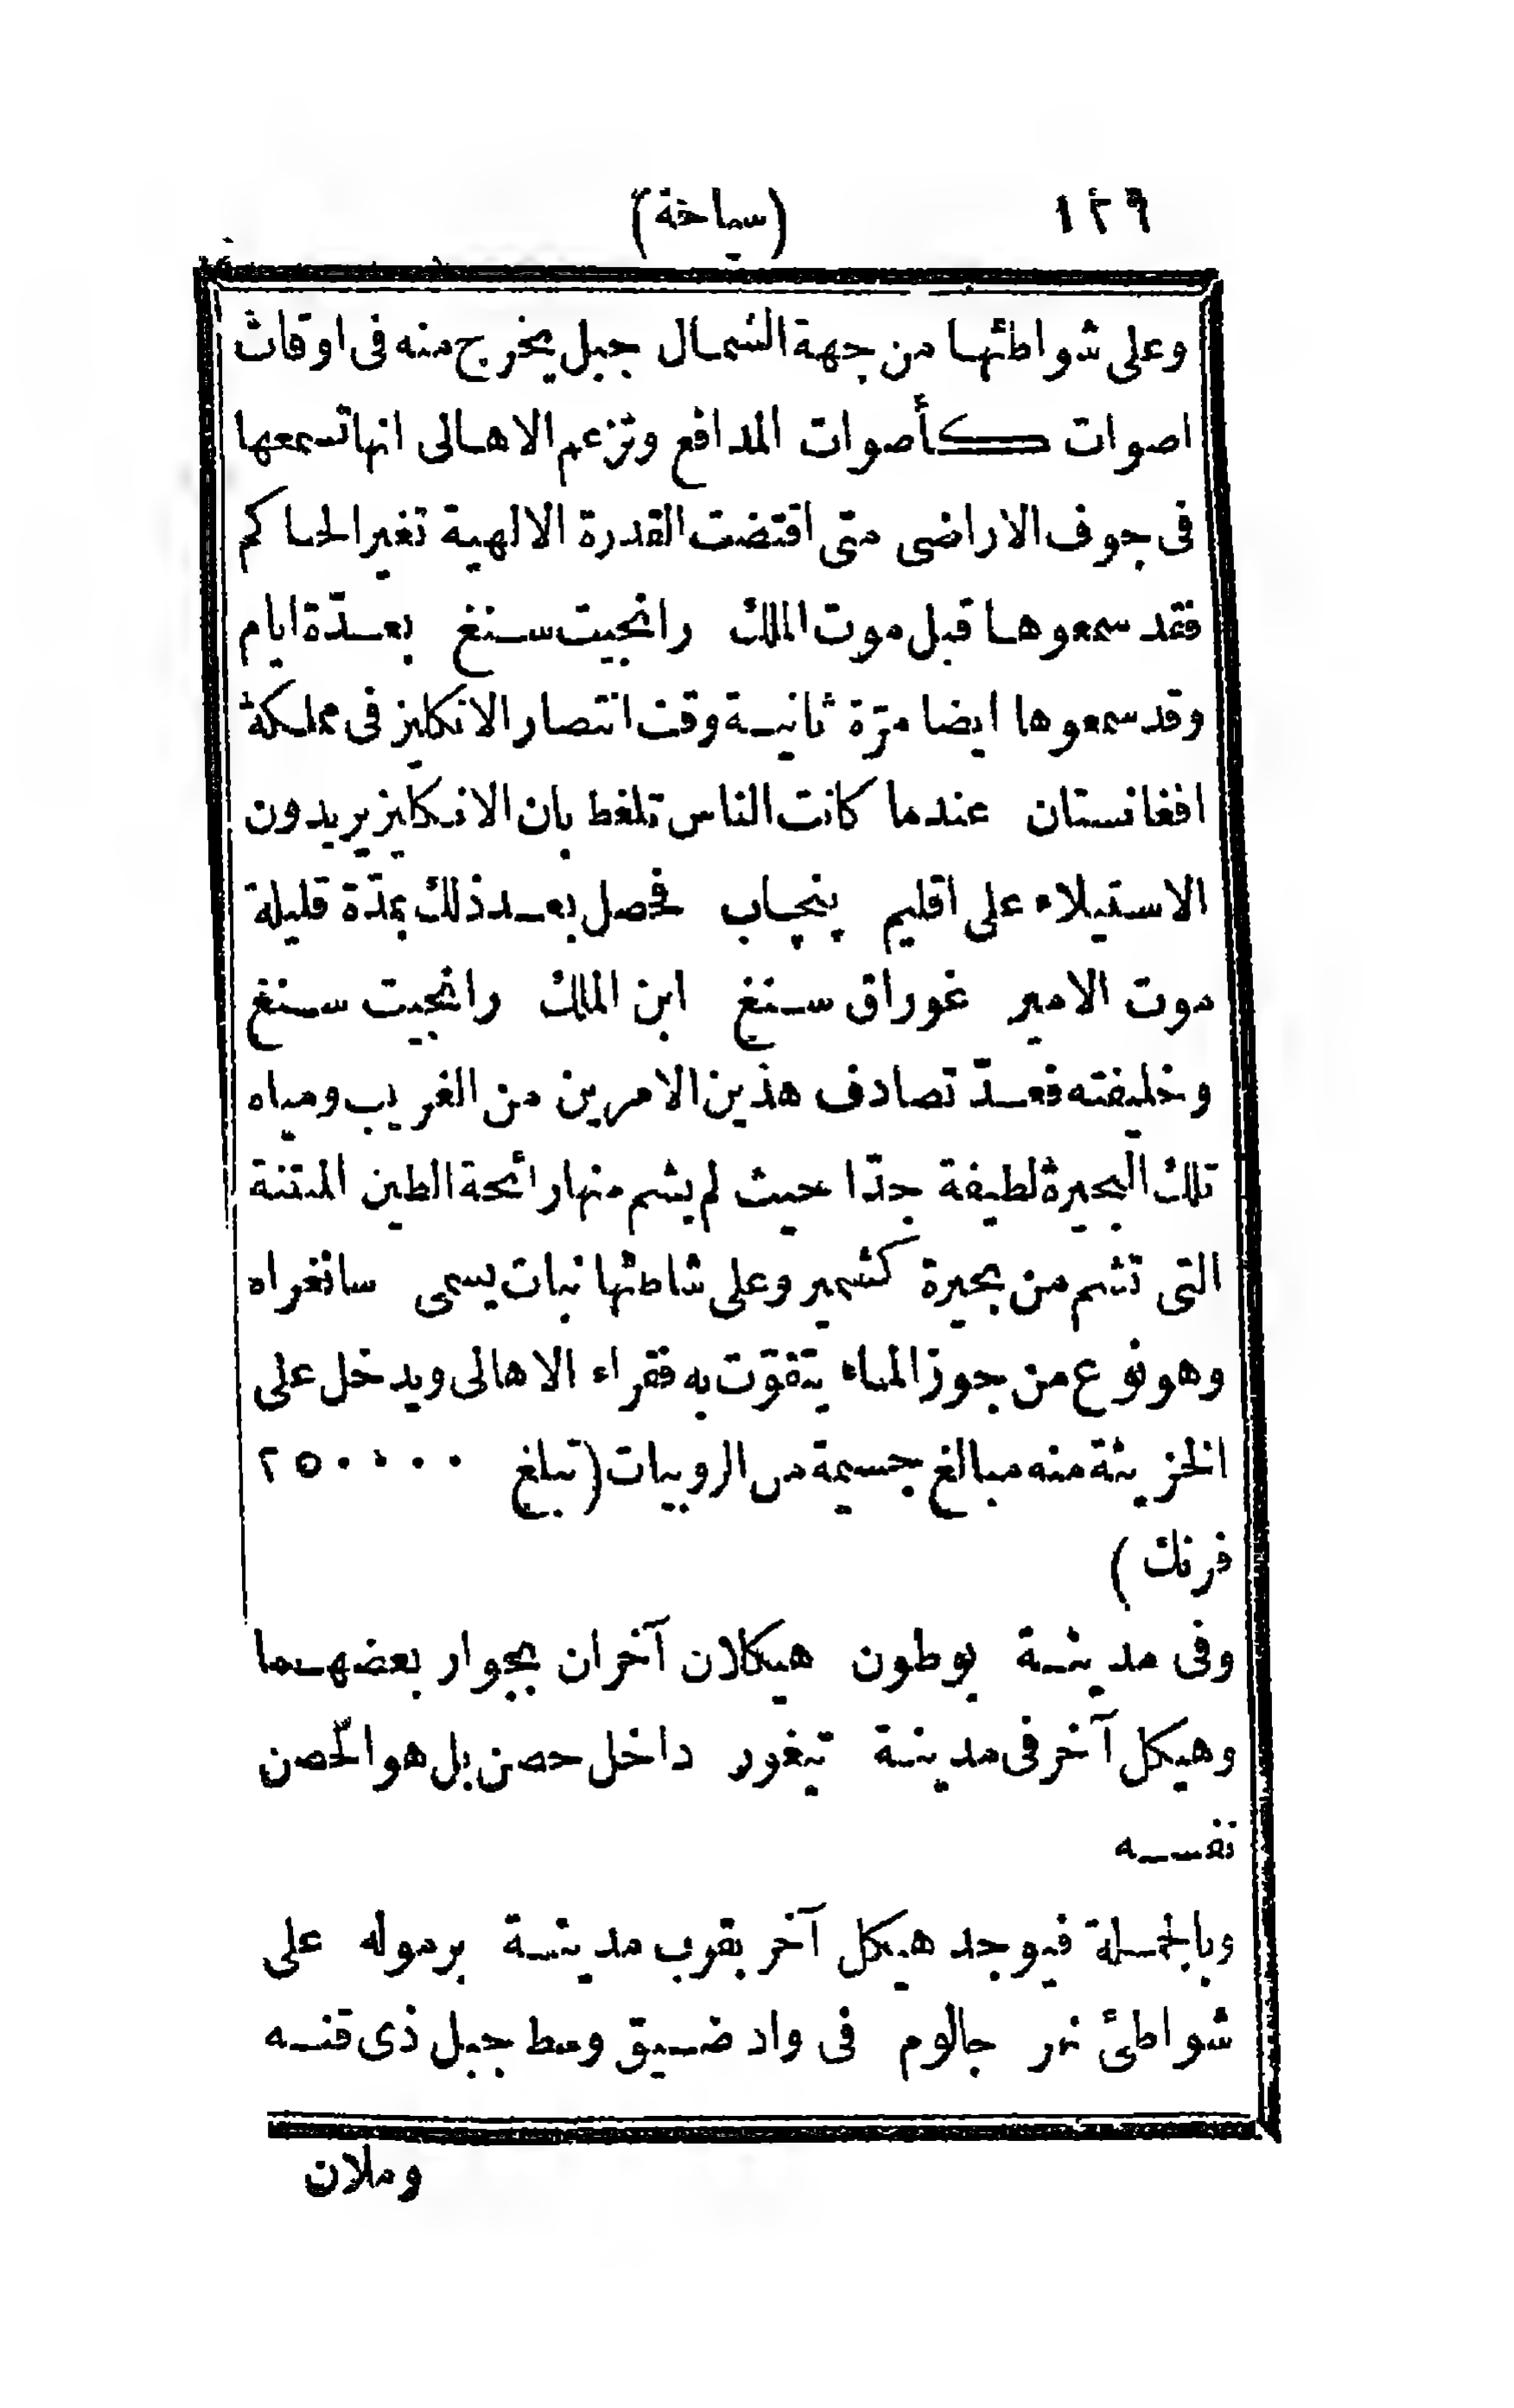 ١٢٦ (سياحة)
وعلى شواطئها من جهة الشمال جبل يخرج منه فى اوقات
اصوات كأصوات المدافع وتزعم الاهالى انها تسمعها
فى جوف الاراضى متى اقتضت القدرة الالهية تغير الحاكم
فقد سمعوها قبل موت الملك رانجيت سنغ بعدّة ايام
وقد سمعوها ايضا مرّة ثانية وقت انتصار الانكليز فى مملكة
افغانستان عندما كانت الناس تلغط بان الانكليز يريدون
الاستيلاء على اقليم پنچاب فحصل بعد ذلك بمدّة قليلة
موت الامير غوراق سنغ ابن الملك رانجيت سنغ
وخليفته فعدّ تصادف هذين الامرين من الغريب ومياه
تلك البحيرة لطيفة جدّا حيث لم يشم منها رائحة الطين المتنة
التى تشم من بحيرة كشمير وعلى شاطئها نبات يسمى سانغراه
وهو نوع من جوز الماء يتقوّت به فقراء الاهالى ويدخل على
الخزينة منه مبالغ جسيمة من الروبيات (تبلغ ٢٥٠٠٠٠
فرنك)
وفى مدينة بوطون هيكلان آخران بجوار بعضهما
وهيكل آخر فى مدينة تيغور داخل حصن بل هو الحصن
نفسه
وبالجملة فيوجد هيكل آخر بقرب مدينة برموله على
شواطئ نهر جالوم فى واد ضيق وسط جبل ذى قنه
وملان